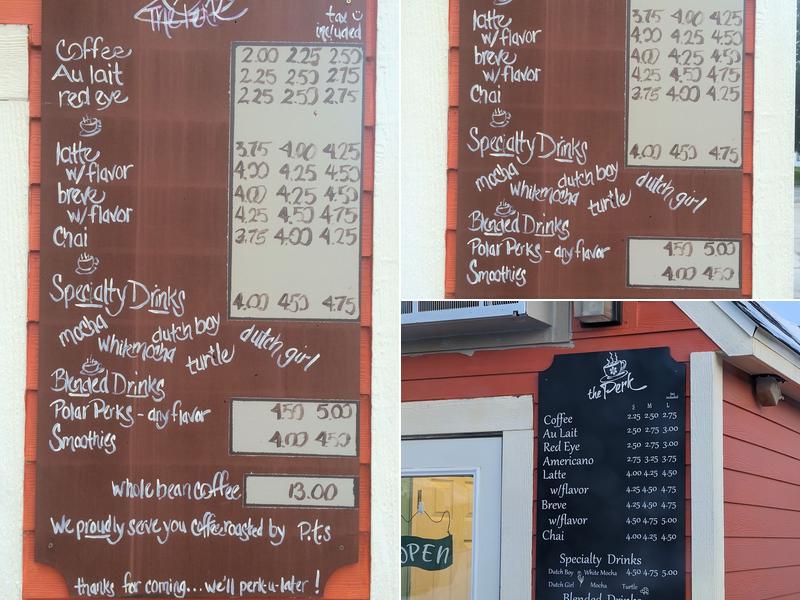 The Perk
tax
included
Coffee 2.00 2.25 2.50
Au lait 2.25 2.50 2.75
red eye 2.25 2.50 2.75
latte 3.75 4.00 4.25
w/flavor 4.00 4.25 4.50
breve 4.00 4.25 4.50
w/flavor 4.25 4.50 4.75
Chai 3.75 4.00 4.25
Specialty Drinks 4.00 4.50 4.75
mocha white mocha dutch boy turtle dutch girl
Blended Drinks
Polar Perks - any flavor 4.50 5.00
Smoothies 4.00 4.50
whole bean coffee 13.00
we proudly serve you coffee roasted by P.t.s
thanks for coming... we'll perk-u-later !
latte 3.75 4.00 4.25
w/flavor 4.00 4.25 4.50
breve 4.00 4.25 4.50
w/flavor 4.25 4.50 4.75
Chai 3.75 4.00 4.25
Specialty Drinks 4.00 4.50 4.75
mocha white mocha dutch boy turtle dutch girl
Blended Drinks
Polar Perks - any flavor 4.50 5.00
Smoothies 4.00 4.50
the Perk
S M L
Coffee 2.25 2.50 2.75
Au Lait 2.50 2.75 3.00
Red Eye 2.50 2.75 3.00
Americano 2.75 3.25 3.75
Latte 4.00 4.25 4.50
w/flavor 4.25 4.50 4.75
Breve 4.25 4.50 4.75
w/flavor 4.50 4.75 5.00
Chai 4.00 4.25 4.50
Specialty Drinks
Dutch Boy White Mocha 4.50 4.75 5.00
Dutch Girl Mocha Turtle
Blended Drinks
OPEN